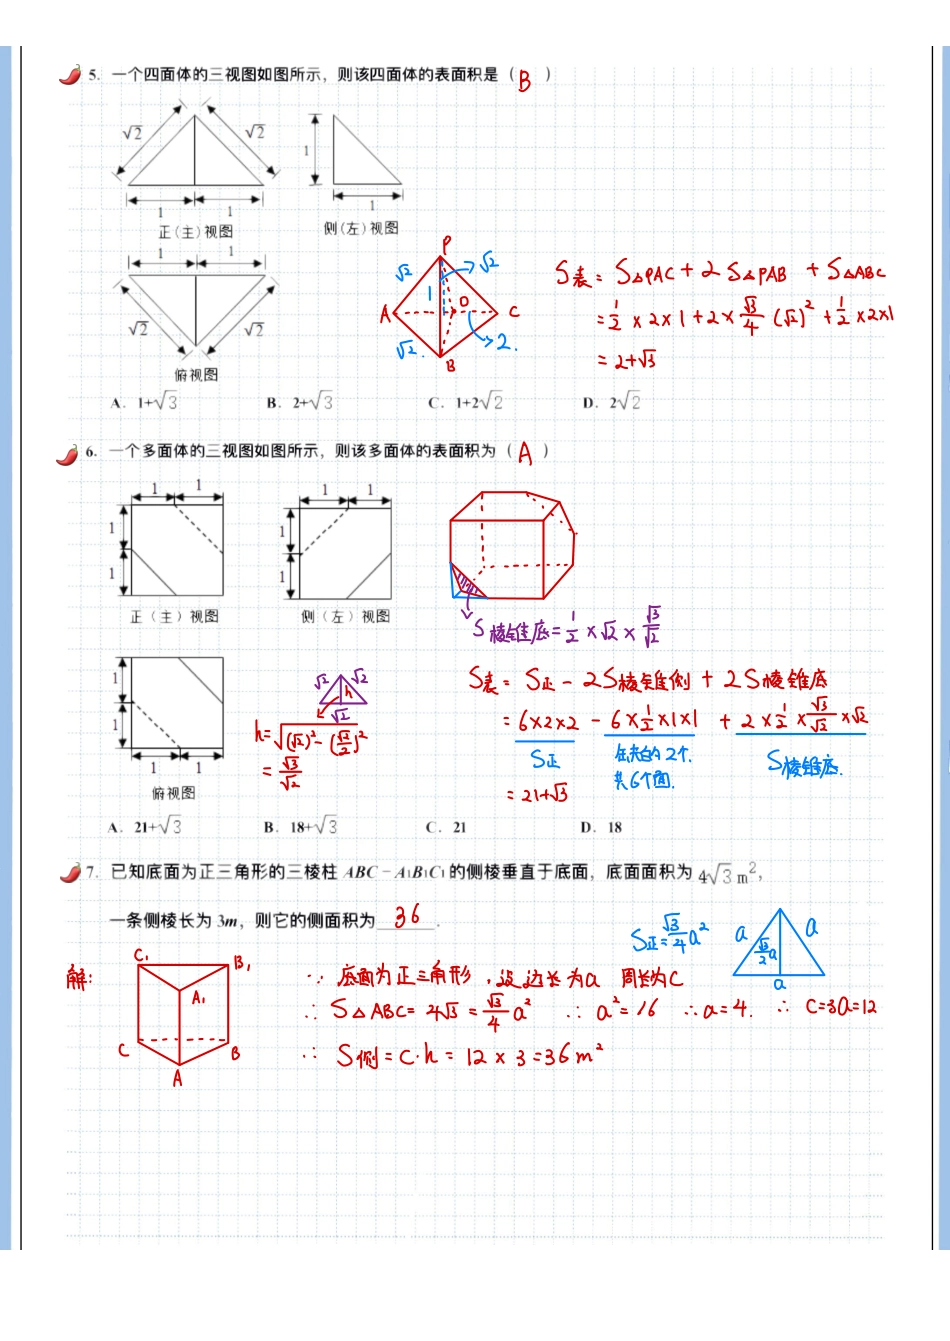 5. 一个四面体的三视图如图所示，则该四面体的表面积是（ B ）
√2 √2 1
1 1 1
正（主）视图 侧（左）视图
1 1
√2 √2
俯视图
P
√2 √2
1
A D C
√2. 2.
B
S表 = S△PAC + 2 S△PAB + S△ABC
= 1/2 × 2×1 + 2× √3/4 (√2)² + 1/2 ×2×1
= 2+√3
A. 1+√3 B. 2+√3 C. 1+2√2 D. 2√2
6. 一个多面体的三视图如图所示，则该多面体的表面积为（ A ）
1 1 1 1
1 1
1 1
正（主）视图 侧（左）视图
S棱锥底 = 1/2 × √2 × √3/√2
1
1
1 1
俯视图
√2 √2
h
√2
h= √((√2)²-(√2/2)²)
= √3/√2
S表 = S正 - 2S棱锥侧 + 2S棱锥底
= 6×2×2 - 6×1/2×1×1 + 2×1/2×√3/√2×√2
S正 S棱锥底.
共6个面.
= 21+√3
A. 21+√3 B. 18+√3 C. 21 D. 18
7. 已知底面为正三角形的三棱柱 ABC－A₁B₁C₁ 的侧棱垂直于底面，底面面积为 4√3 m²，
一条侧棱长为 3m，则它的侧面积为 36 .
S正= √3/4 a²
a a
√3/2 a
a
解:
C₁ B₁
A₁
C B
A
∵ 底面为正三角形，设边长为a 周长为C
∴ S△ABC= 4√3 = √3/4 a² ∴ a²=16 ∴a=4. ∴ C=3a=12
∴ S侧=C·h = 12 × 3 =36 m²